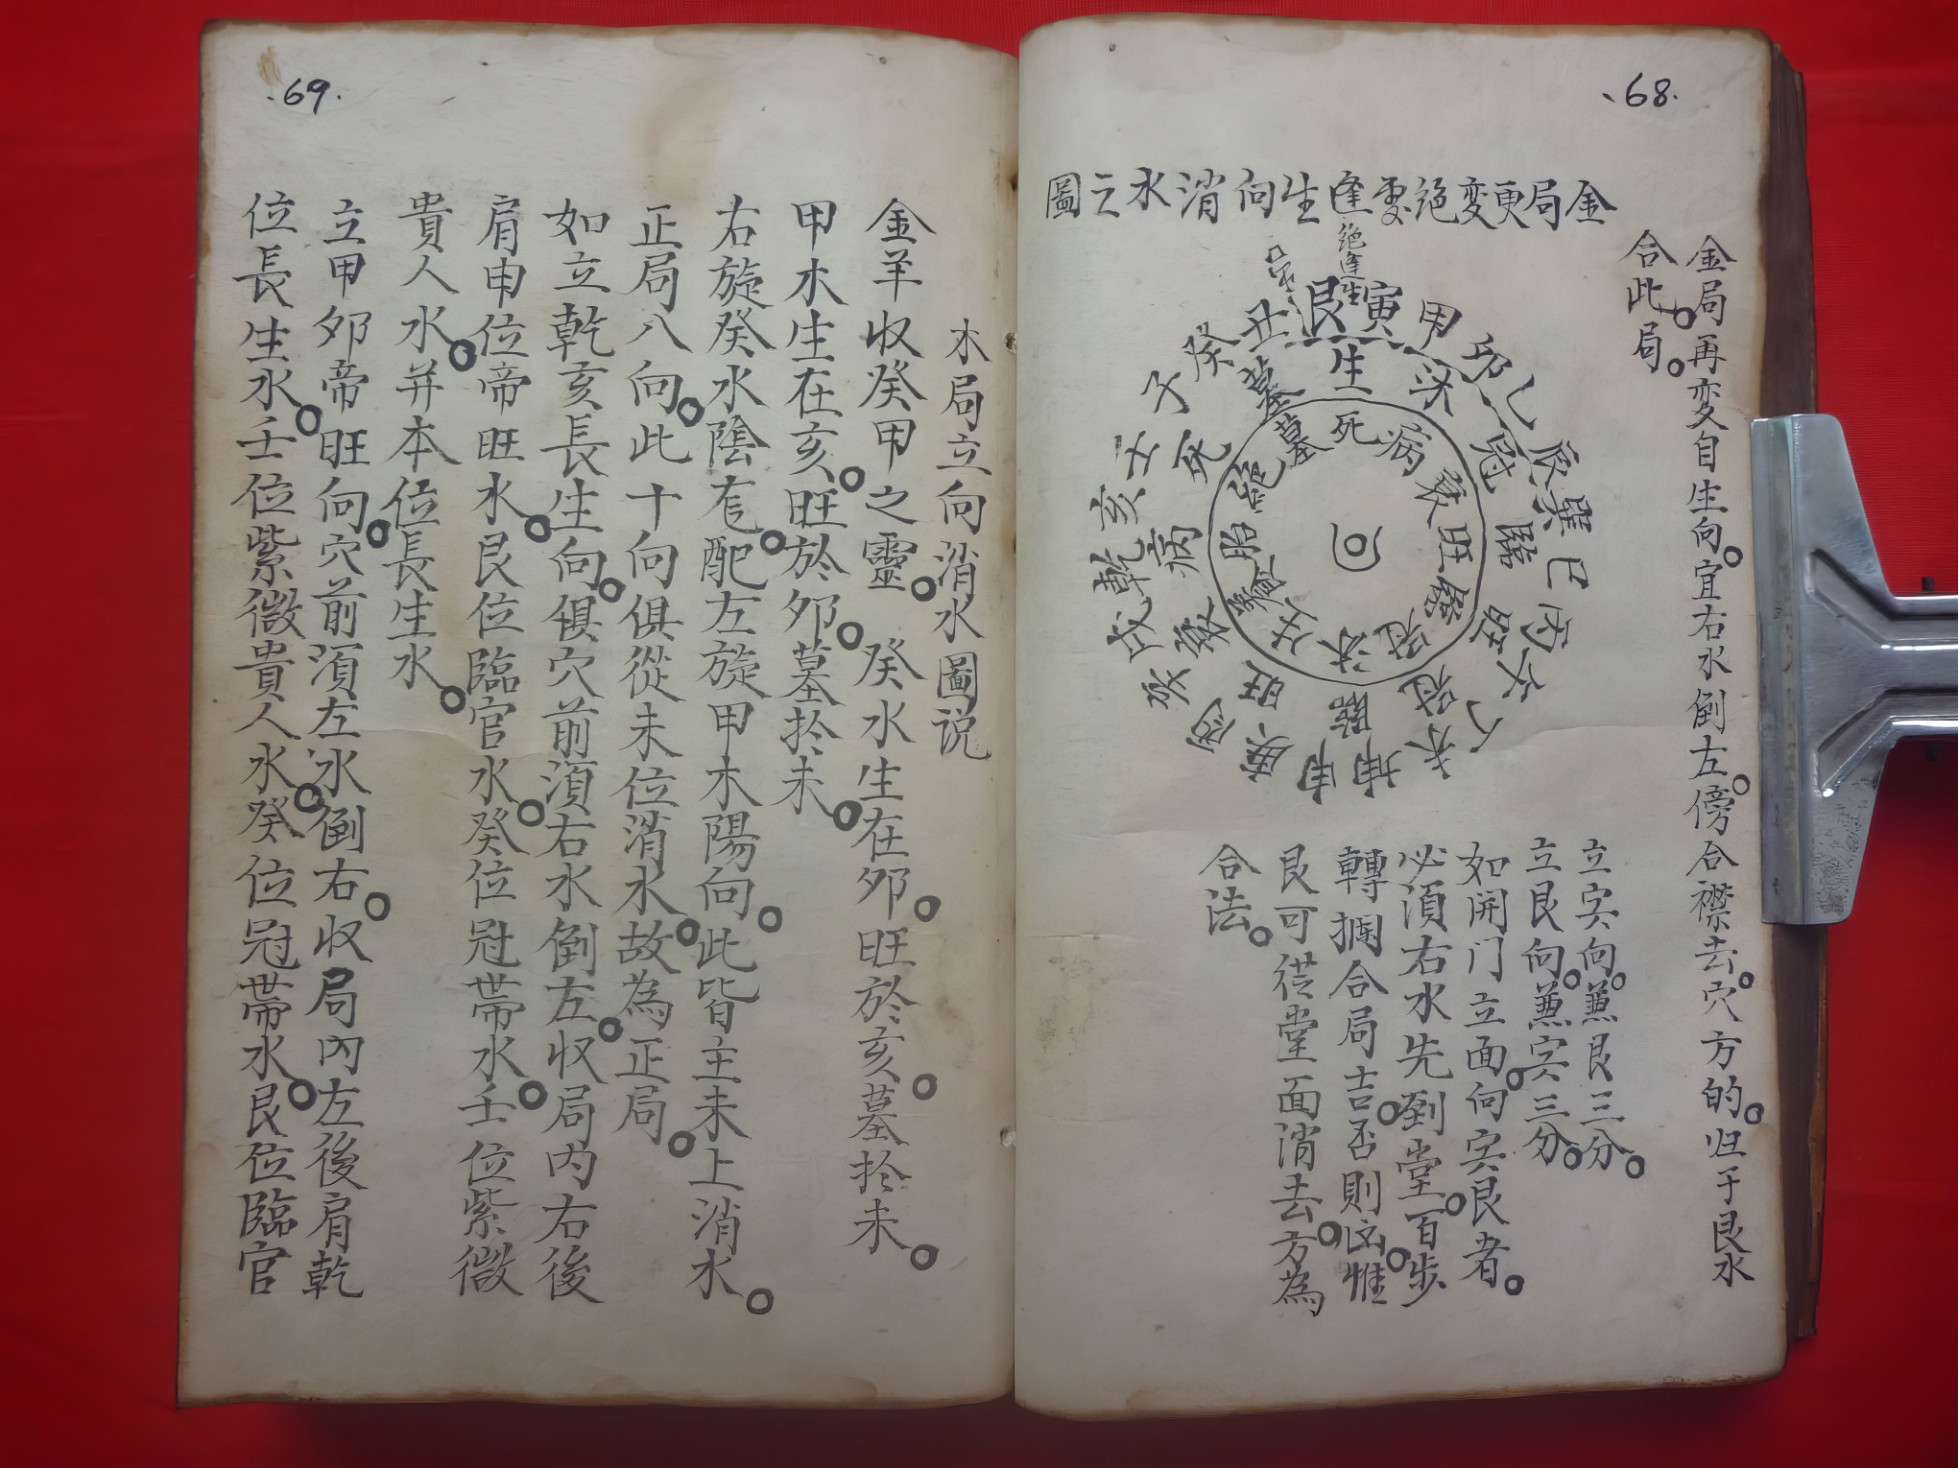 .68.
金局再变自生向。宜右水倒左。傍合襟去。穴方的。归于艮水
合此。局。
金局更变绝處逢生向消水之圖
絕逢生
艮寅甲卯乙辰巽巳丙午丁未坤申庚酉辛戌乾亥壬子癸丑
生沐冠臨旺衰病死墓
墓死病衰旺臨冠沐生養胎絕
向
立寅向。兼艮三分。
立艮向。兼寅三分。
如開门立面向寅艮者。
必須右水先到堂。一百步
轉摑合局吉。否則凶。惟
艮可從堂面消去。方為
合法。
.69.
木局立向消水圖说
金羊收癸甲之靈。 癸水生在卯。旺於亥。墓於未。
甲木生在亥。旺於卯。墓於未。
右旋癸水陰宅。配左旋甲木陽向。此皆主未上消水。
正局八向。此十向俱從未位消水。故為正局。
如立乾亥長生向。俱穴前湏右水倒左。收局内右後
肩申位帝旺水。艮位臨官水。癸位冠帶水。壬位紫微
貴人水。并本位長生水。
立甲卯帝旺向。穴前湏左水倒右。收局内左後肩乾
位長生水。壬位紫微貴人水。癸位冠帶水。艮位臨官